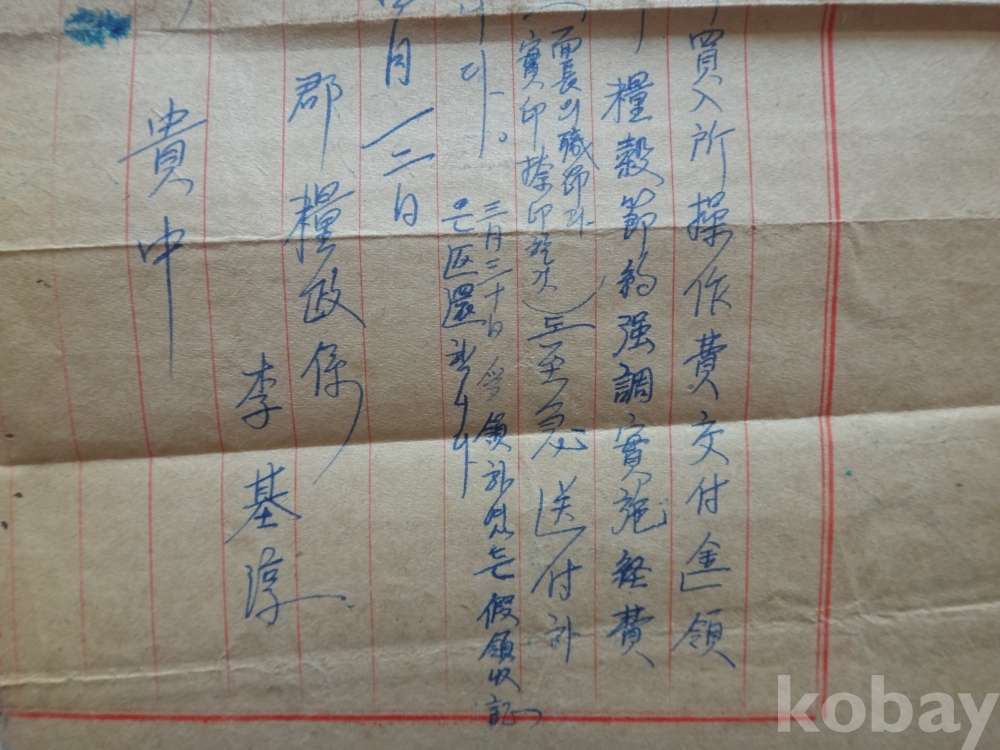 買入所操作費交付金領
糧穀節約强調實施經費
面長의職印과
實印捺印
至急送付하
니다。
三月三十日 受領하였든假領収証
은返還합니다
月 一二日
郡糧政係
李基淳
貴中
kobay